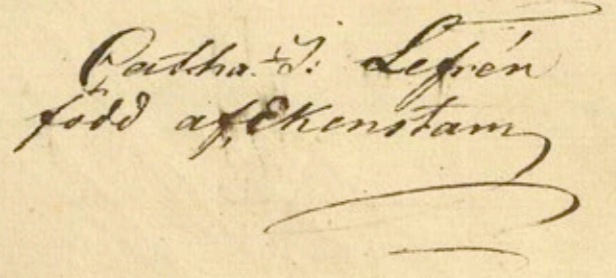 Catha. I: Lefrén
född af Ekenstam